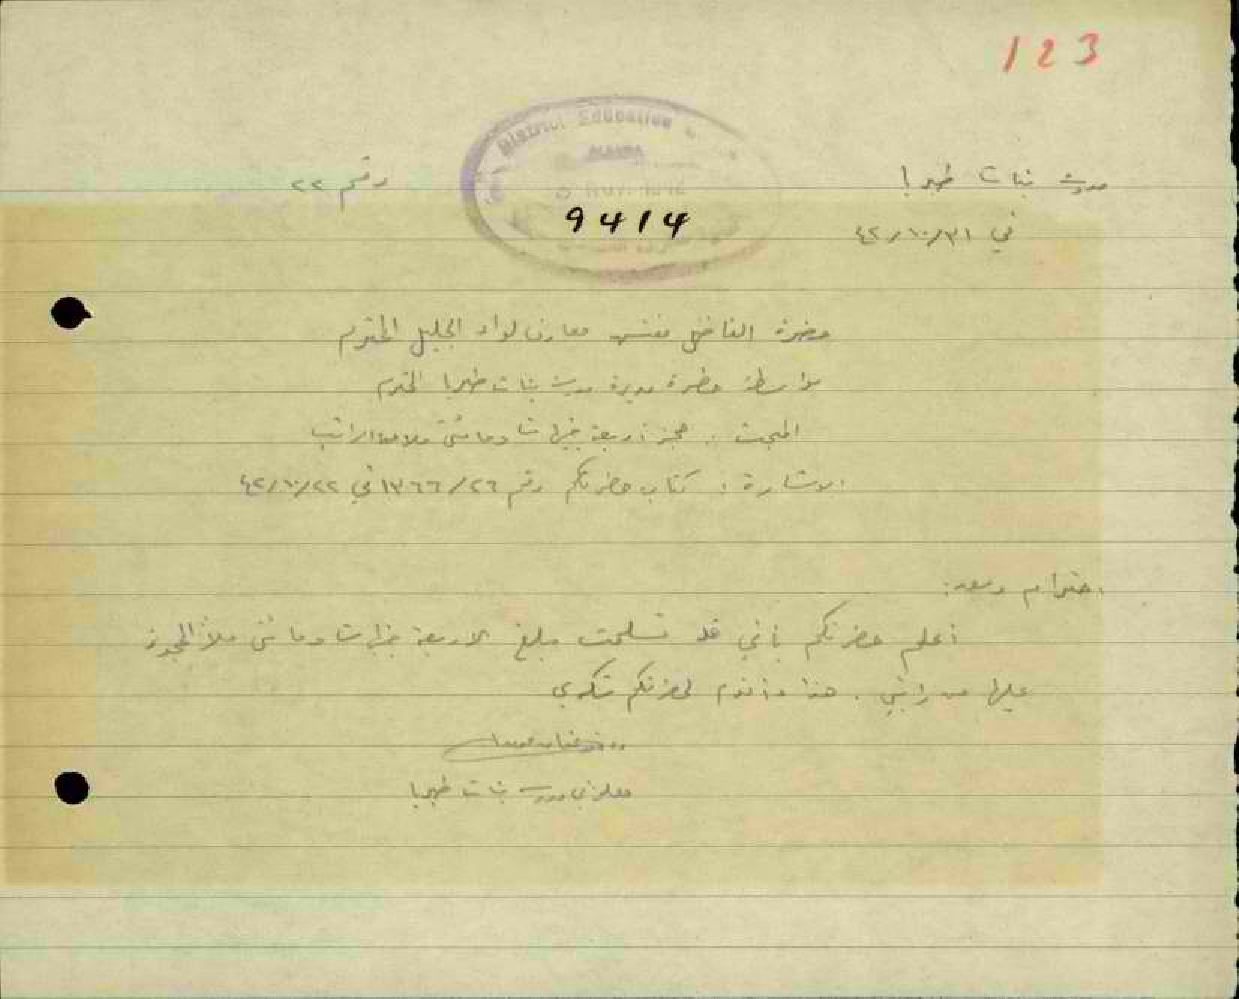 123
District Education
مدرسة بنات طبريا
رقم ٢٢
9414
في ٣١/١٠/٤٢
حضرة الفاضل مفتش معارف لواء الجليل المحترم
بواسطة حضرة مديرة مدرسة بنات طبريا المحترم
المبحث : حجز اربعة جنيهات ومائتي ملا من الراتب
الاشارة : كتاب حضرتكم رقم ٢٦/١٣٦٦ في ٢٢/١٠/٤٢
احترام وبعد :
أعلم حضرتكم بأني قد تسلمت مبلغ الاربعة جنيهات ومائتي ملاً المحجوز
عليها من راتبي . هذا واقدم لحضرتكم شكري
معلمة في مدرسة بنات طبريا